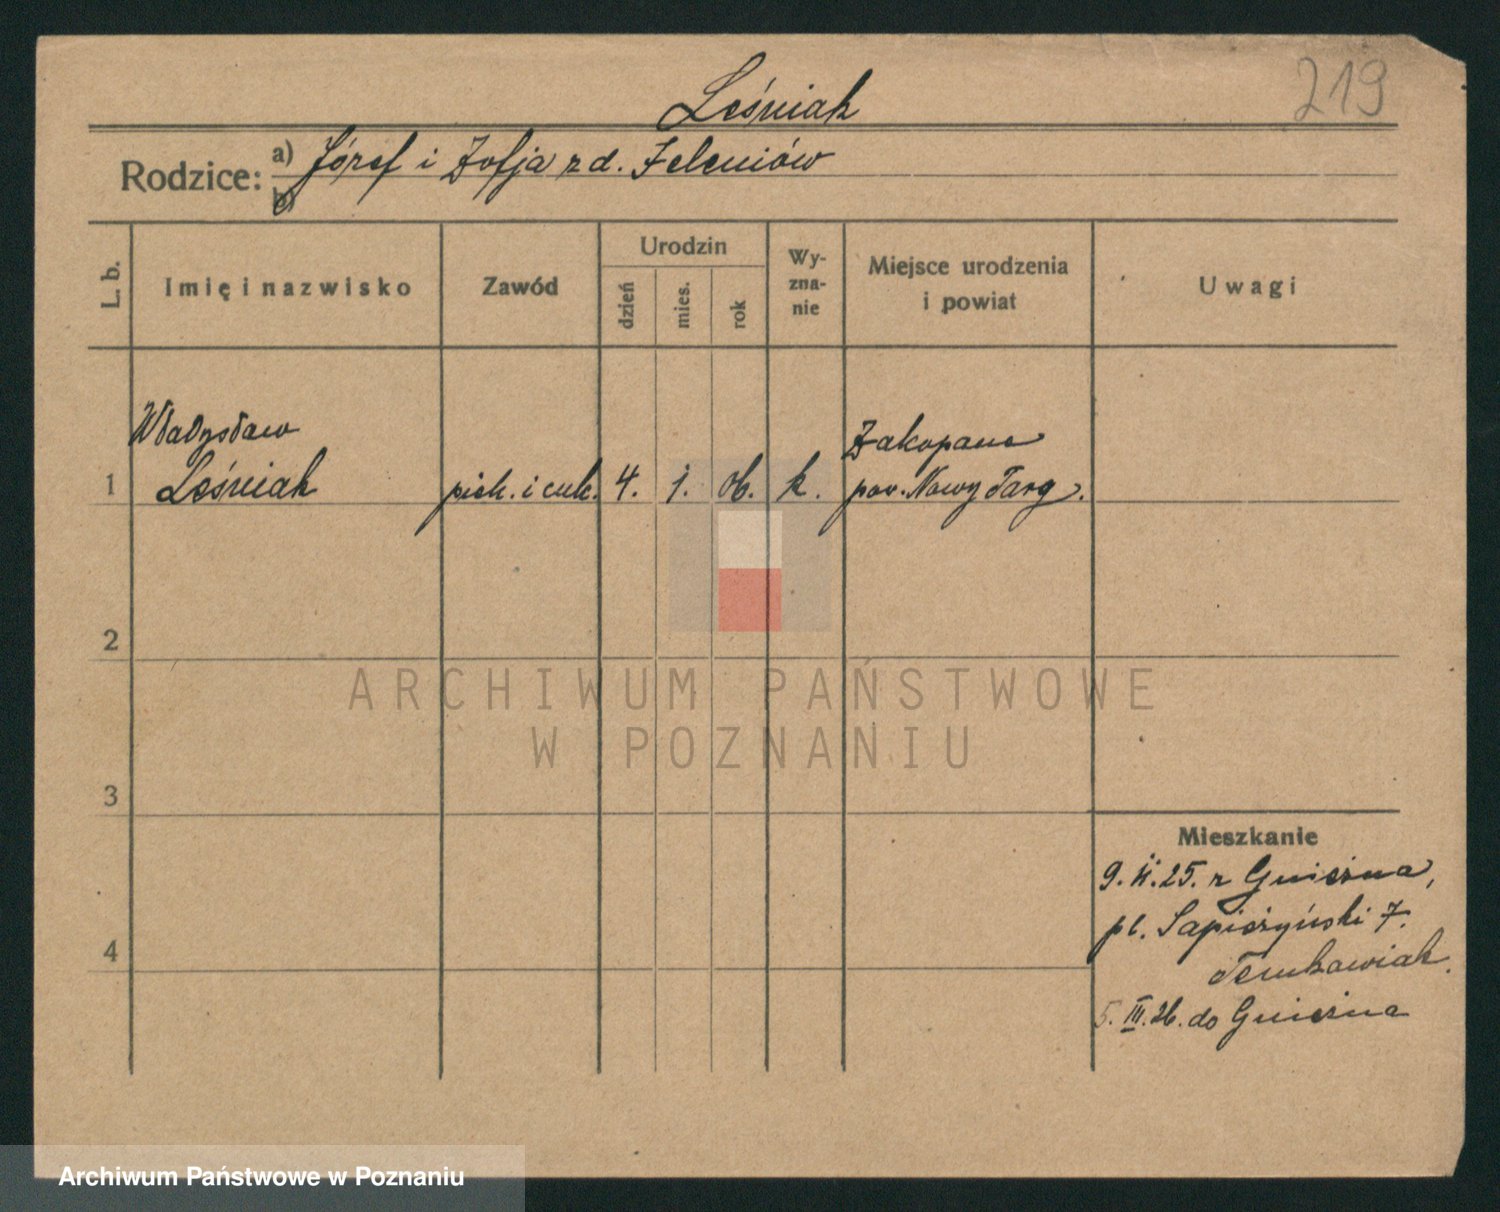 219
Leśniak
Rodzice: a) Józef i Zofja z d. Zeleniów
b)
L. b. Imię i nazwisko Zawód Urodzin dzień mies. rok Wy-zna-nie Miejsce urodzenia i powiat Uwagi
Władysław Zakopane
1 Leśniak piek. i cuk. 4. 1. 06. k. pow. Nowy Targ.
2
ARCHIWUM PAŃSTWOWE
W POZNANIU
3
Mieszkanie
9. 25. z Gniezna,
pl. Sapieżyński 7.
4
5. III. 26. do Gniezna
Archiwum Państwowe w Poznaniu